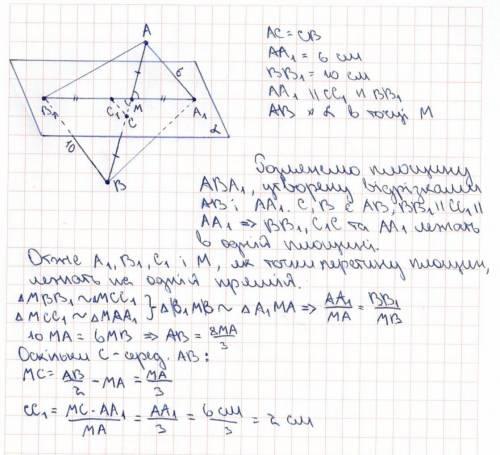 A
6
B₁
C₁
M
A₁
C
α
10
B
AC = CB
AA₁ = 6 см
BB₁ = 10 см
AA₁ || CC₁ || BB₁
AB × α в точці M
площину
ABA₁, утворену відрізками
AB і AA₁. C, B ∈ AB, BB₁ || CC₁ ||
AA₁ ⇒ BB₁, C₁C та AA₁ лежать
в одній площині.
Отже A₁, B₁, C₁ і M, як точки перетину площин,
лежать на одній прямій.
ΔMBB₁ ~ ΔMCC₁
ΔMCC₁ ~ ΔMAA₁ } ΔB₁MB ~ ΔA₁MA ⇒ AA₁/MA = BB₁/MB
10MA = 6MB ⇒ AB = 8MA/3
Оскільки C - серед. AB:
MC = AB/2 - MA = MA/3
CC₁ = MC·AA₁/MA = AA₁/3 = 6 см/3 = 2 см